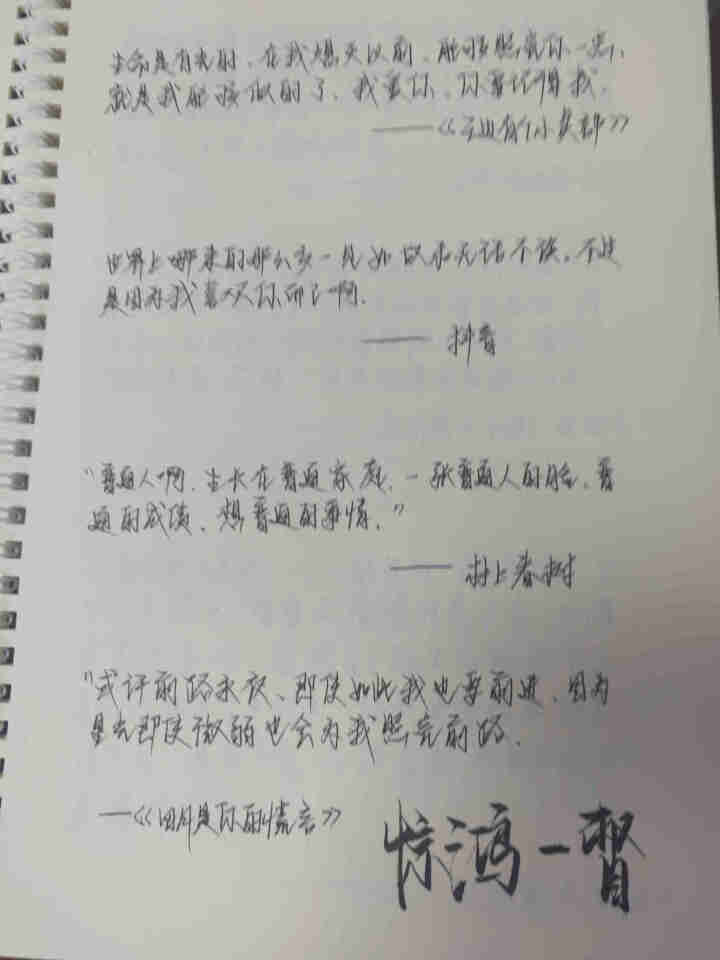 生命是有光的、在我熄灭以前、能够照亮你一点、
就是我能够做的了、我爱你、你要记得我。
——《云边有个小卖部》
世界上哪来的那么多一见如故和无话不谈。不过
是因为我喜欢你而已啊.
—— 抖音
“普通人啊.生长在普通家庭.一张普通人的脸、普
通的成绩、想普通的事情。”
—— 村上春树
“或许前路永夜、即使如此我也要前进、因为
星光即使微弱也会为我照亮前路.
—《四月是你的谎言》
惊鸿一瞥